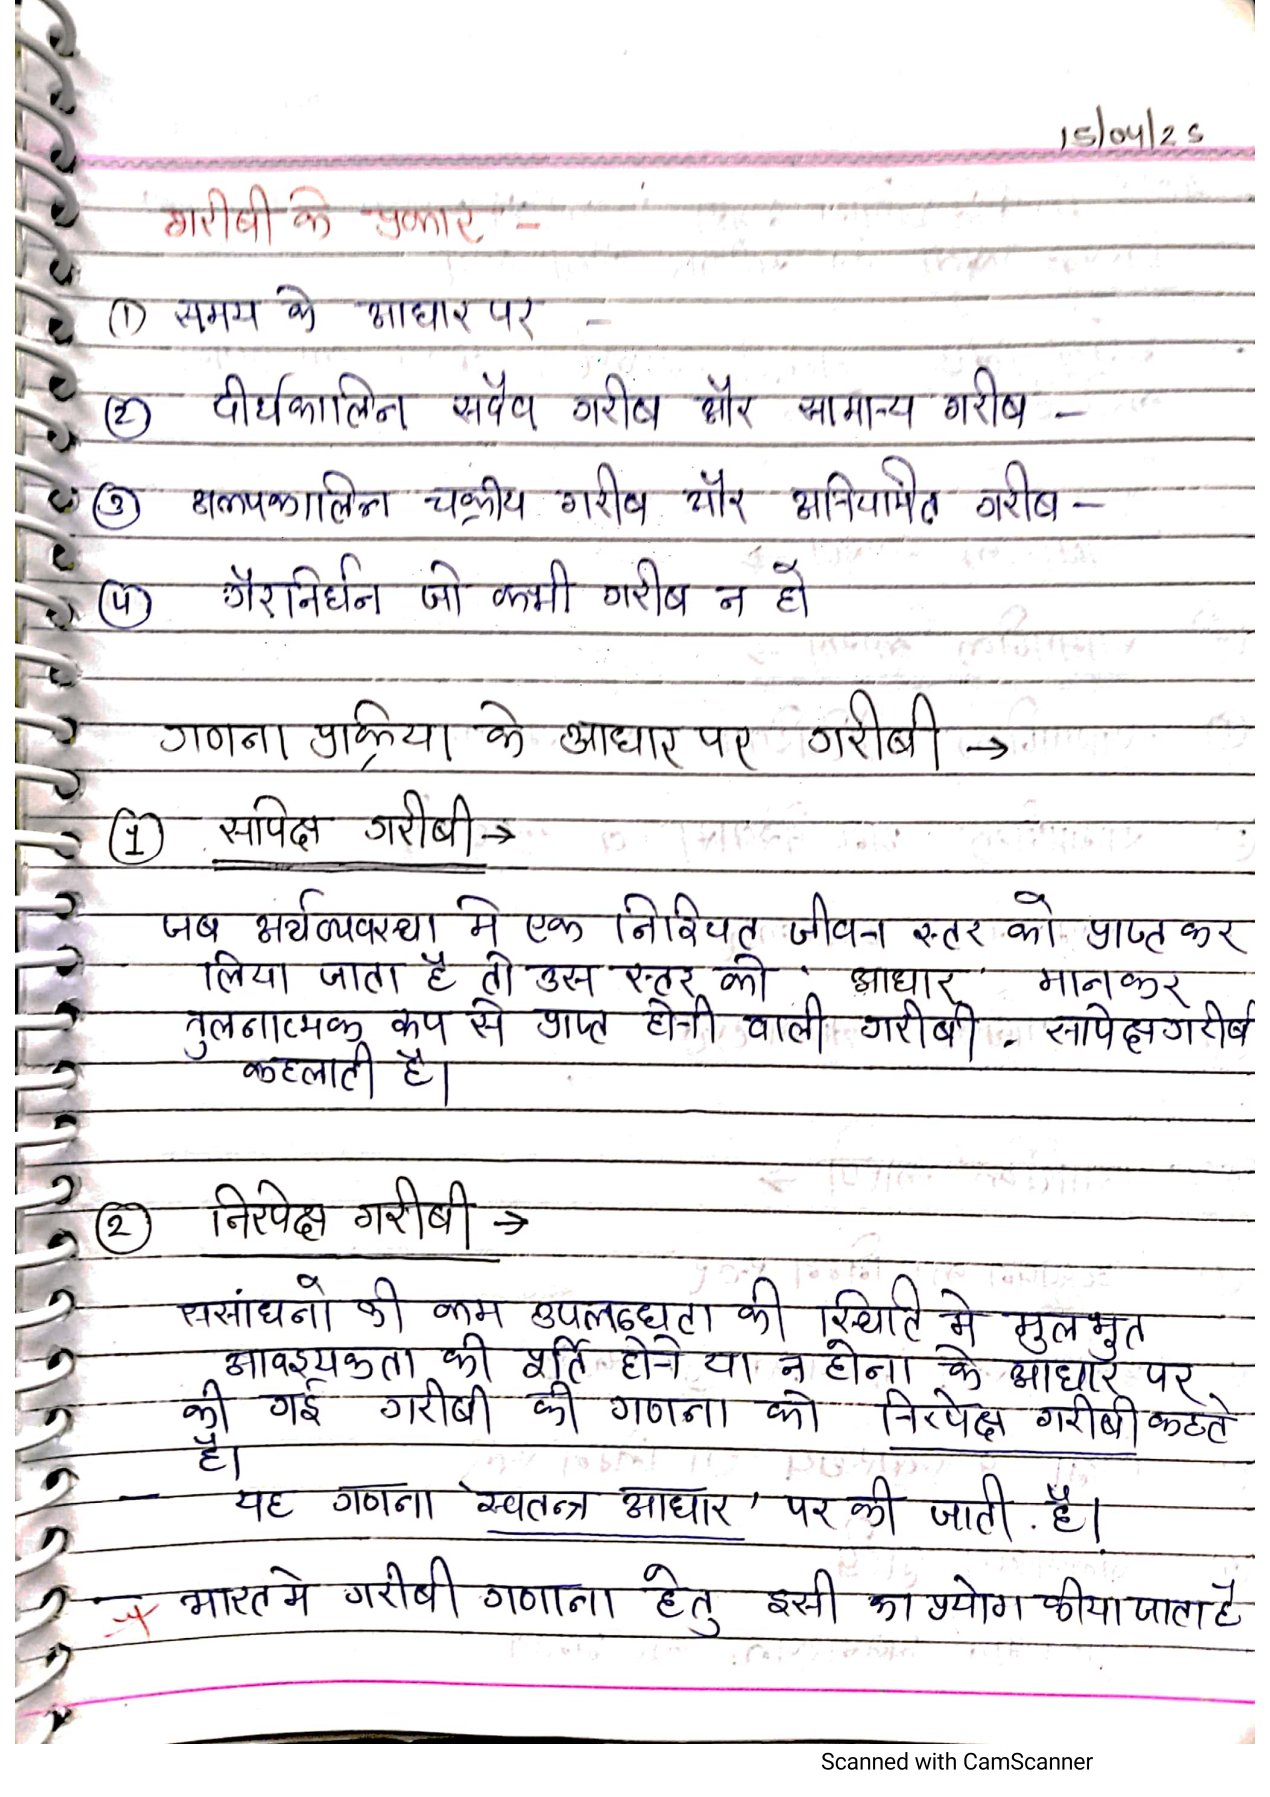 15/04/25
गरीबी के प्रकार -
(1) समय के आधार पर -
(2) दीर्घकालिन सदैव गरीब और सामान्य गरीब -
(3) अल्पकालिन चक्रीय गरीब और अनियमित गरीब -
(4) गैरनिर्धन जो कभी गरीब न हो
गणना प्रक्रिया के आधार पर गरीबी →
(1) सापेक्ष गरीबी →
जब अर्थव्यवस्था मे एक निश्चित जीवन स्तर को प्राप्त कर
लिया जाता है तो उस स्तर को ' आधार ' मानकर
तुलनात्मक रूप से प्राप्त होनी वाली गरीबी . सापेक्ष गरीबी
कहलाती है।
(2) निरपेक्ष गरीबी →
संसांधनो की कम उपलब्धता की स्थिति मे मुलभुत
आवश्यकता की पूर्ति होने या न होना के आधार पर
की गई गरीबी की गणना को निरपेक्ष गरीबी कहते
है।
— यह गणना 'स्वतन्त्र आधार' पर की जाती है।
— भारत मे गरीबी गणाना हेतु इसी का प्रयोग कीया जाता है
Scanned with CamScanner